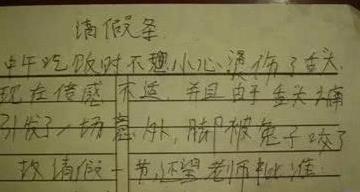 请假条
中午吃饭时不小心烫伤了舌头
现在倍感不适,并且由于舌头痛
引发了一场意外,脚被兔子咬了
故请假一节,还望老师批准